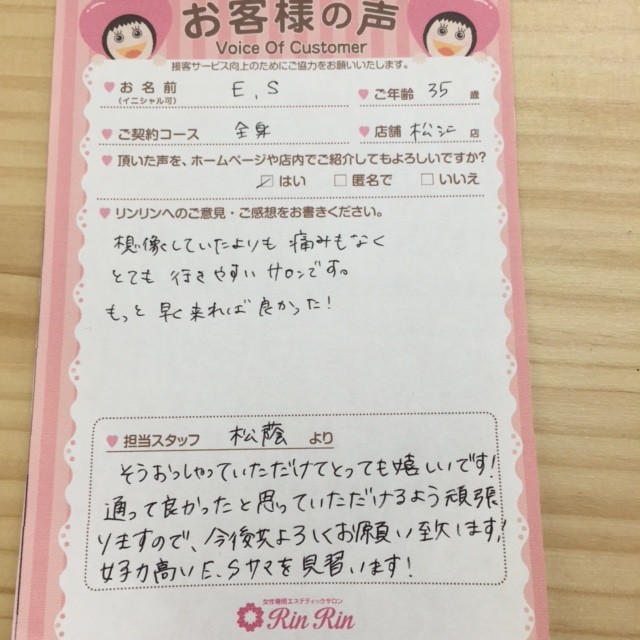 お客様の声
Voice Of Customer
接客サービス向上のためにご協力をお願いいたします。
お名前 E.S ご年齢 35 歳
(イニシャル可)
ご契約コース 全身 店舗 松江 店
頂いた声を、ホームページや店内でご紹介してもよろしいですか?
はい 匿名で いいえ
リンリンへのご意見・ご感想をお書きください。
想像していたよりも 痛みもなく
とても 行きやすい サロンです。
もっと 早く来れば 良かった!
担当スタッフ 松蔭 より
そうおっしゃっていただけてとっても嬉しいです!
通って良かったと思っていただけるよう頑張
りますので、今後共よろしくお願い致します!
女子力高いE.Sサマを見習います!
女性専用エステティックサロン
Rin Rin